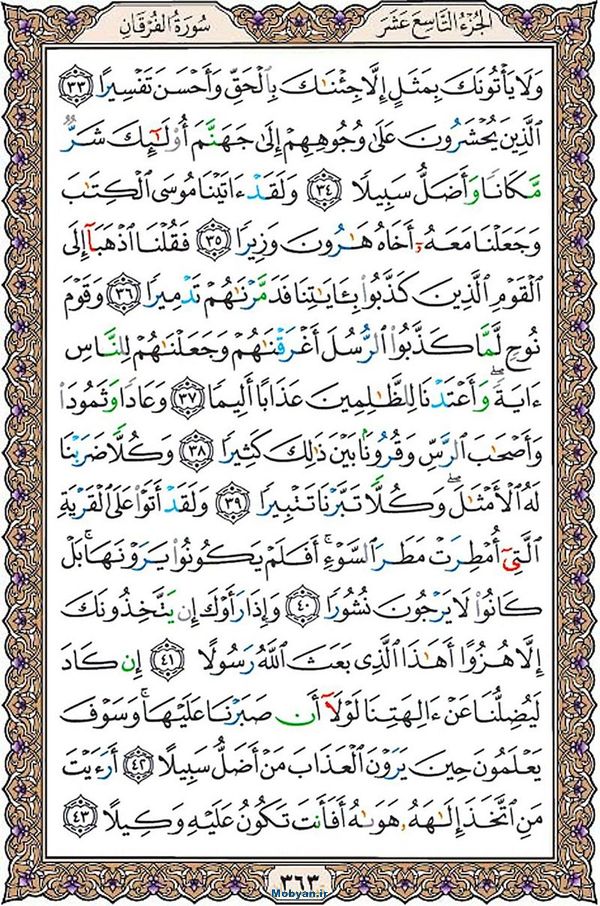 سُورَةُ الفُرۡقَانِ
الجُزءُ التَّاسِعَ عَشَرَ
وَلَا يَأۡتُونَكَ بِمَثَلٍ إِلَّا جِئۡنَٰكَ بِٱلۡحَقِّ وَأَحۡسَنَ تَفۡسِيرًا ٣٣
ٱلَّذِينَ يُحۡشَرُونَ عَلَىٰ وُجُوهِهِمۡ إِلَىٰ جَهَنَّمَ أُوْلَٰٓئِكَ شَرّٞ
مَّكَانٗا وَأَضَلُّ سَبِيلٗا ٣٤ وَلَقَدۡ ءَاتَيۡنَا مُوسَى ٱلۡكِتَٰبَ
وَجَعَلۡنَا مَعَهُۥٓ أَخَاهُ هَٰرُونَ وَزِيرٗا ٣٥ فَقُلۡنَا ٱذۡهَبَآ إِلَى
ٱلۡقَوۡمِ ٱلَّذِينَ كَذَّبُواْ بِـَٔايَٰتِنَا فَدَمَّرۡنَٰهُمۡ تَدۡمِيرٗا ٣٦ وَقَوۡمَ
نُوحٖ لَّمَّا كَذَّبُواْ ٱلرُّسُلَ أَغۡرَقۡنَٰهُمۡ وَجَعَلۡنَٰهُمۡ لِلنَّاسِ
ءَايَةٗۖ وَأَعۡتَدۡنَا لِلظَّٰلِمِينَ عَذَابًا أَلِيمٗا ٣٧ وَعَادٗا وَثَمُودَاْ
وَأَصۡحَٰبَ ٱلرَّسِّ وَقُرُونَۢا بَيۡنَ ذَٰلِكَ كَثِيرٗا ٣٨ وَكُلّٗا ضَرَبۡنَا
لَهُ ٱلۡأَمۡثَٰلَۖ وَكُلّٗا تَبَّرۡنَا تَتۡبِيرٗا ٣٩ وَلَقَدۡ أَتَوۡاْ عَلَى ٱلۡقَرۡيَةِ
ٱلَّتِيٓ أُمۡطِرَتۡ مَطَرَ ٱلسَّوۡءِۚ أَفَلَمۡ يَكُونُواْ يَرَوۡنَهَاۚ بَلۡ
كَانُواْ لَا يَرۡجُونَ نُشُورٗا ٤٠ وَإِذَا رَأَوۡكَ إِن يَتَّخِذُونَكَ
إِلَّا هُزُوًا أَهَٰذَا ٱلَّذِي بَعَثَ ٱللَّهُ رَسُولًا ٤١ إِن كَادَ
لَيُضِلُّنَا عَنۡ ءَالِهَتِنَا لَوۡلَآ أَن صَبَرۡنَا عَلَيۡهَاۚ وَسَوۡفَ
يَعۡلَمُونَ حِينَ يَرَوۡنَ ٱلۡعَذَابَ مَنۡ أَضَلُّ سَبِيلًا ٤٢ أَرَءَيۡتَ
مَنِ ٱتَّخَذَ إِلَٰهَهُۥ هَوَىٰهُ أَفَأَنتَ تَكُونُ عَلَيۡهِ وَكِيلًا ٤٣
٣٦٣
Mobyan.ir